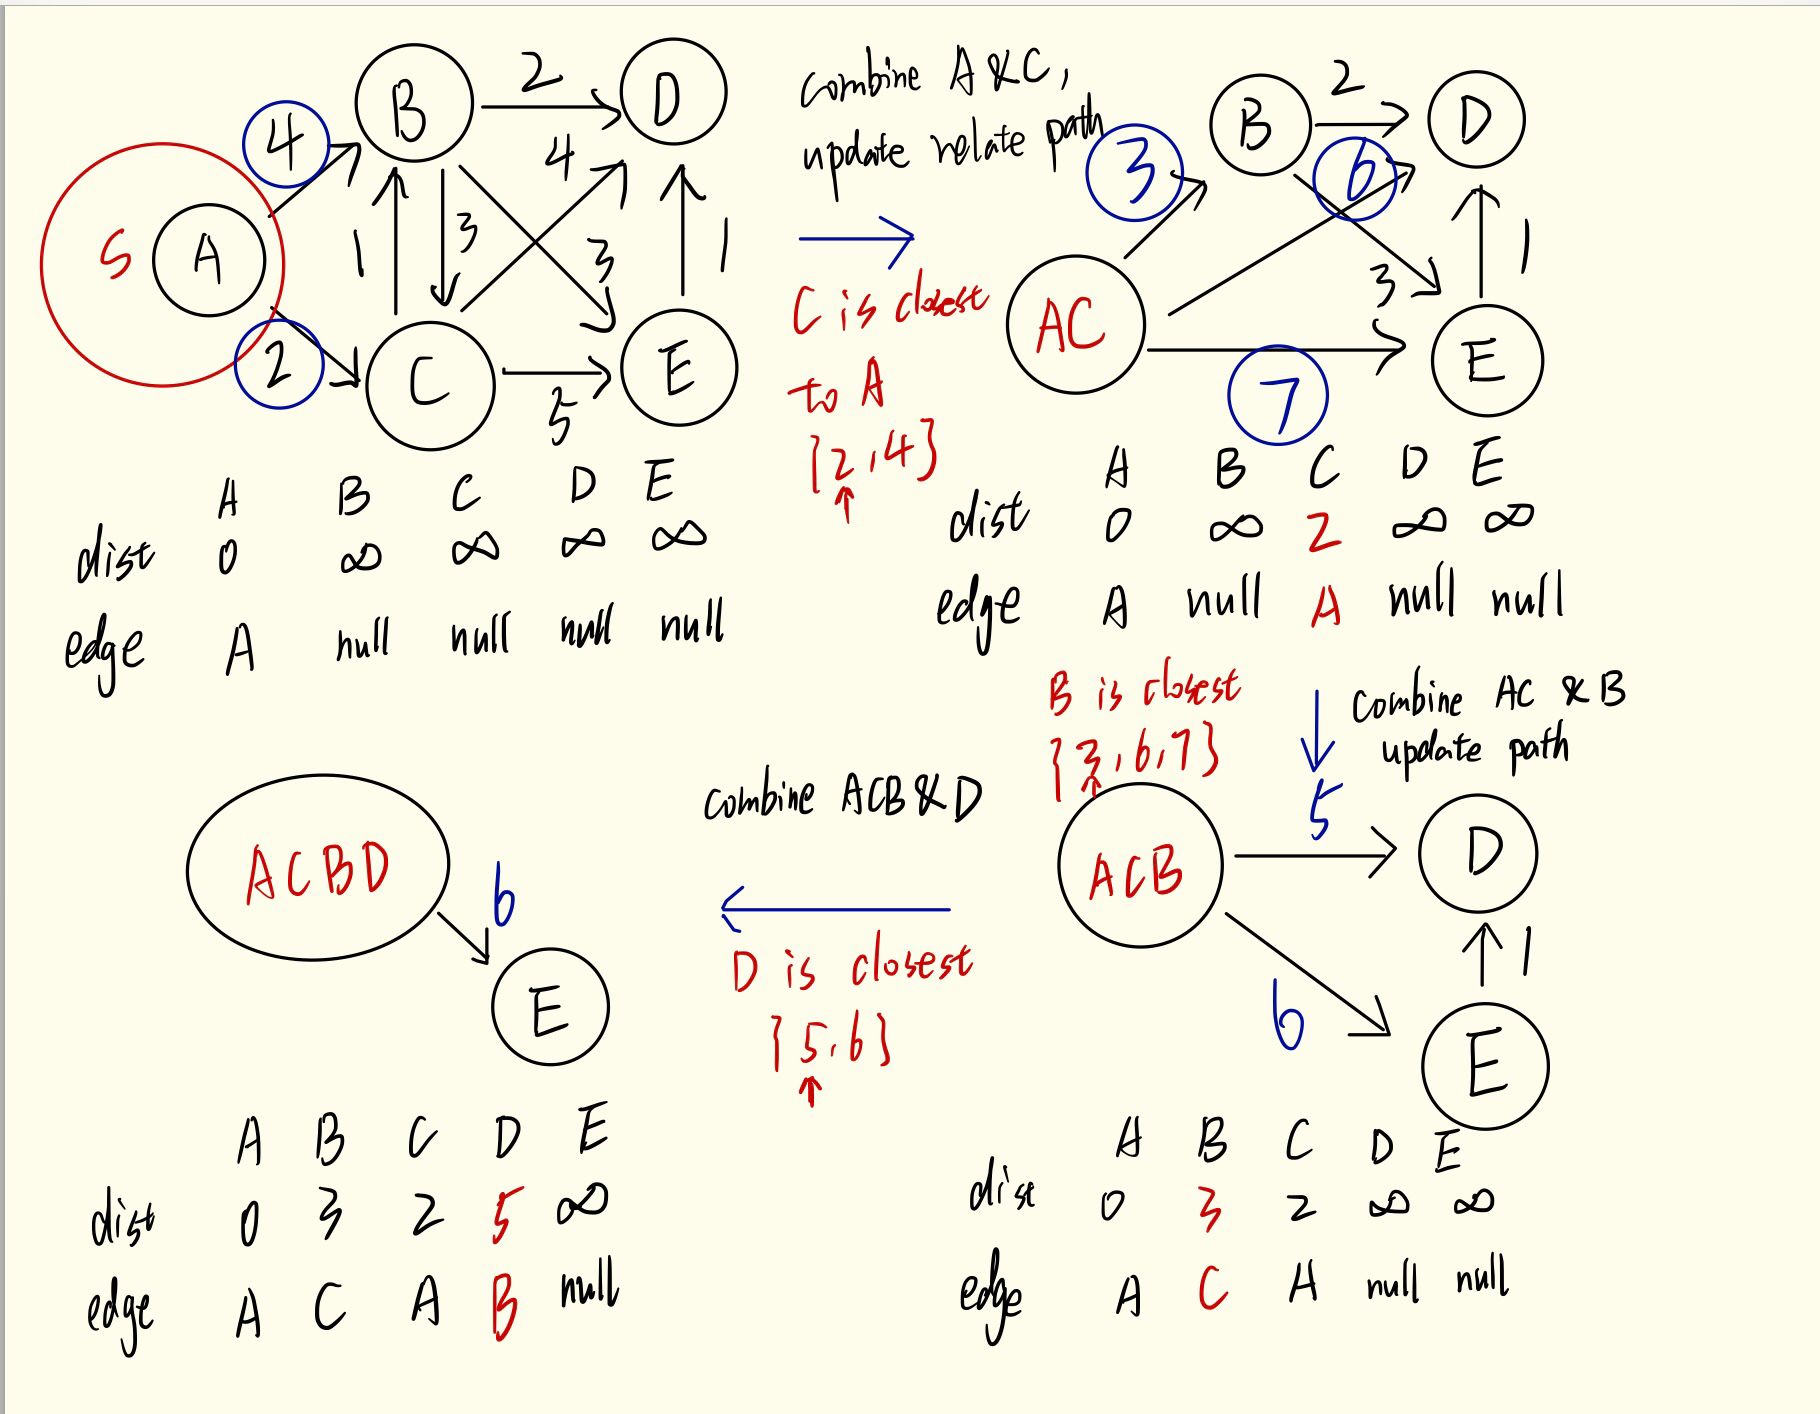 B 2 D
4
4
S A
1
3
3
1
2
C
5
E
A B C D E
dist 0 ∞ ∞ ∞ ∞
edge A null null null null
combine A & C,
update relate path
C is closest
to A
{2,4}
B 2 D
3
6
AC
3
1
7
E
A B C D E
dist 0 ∞ 2 ∞ ∞
edge A null A null null
B is closest
{3,6,7}
combine AC & B
update path
ACB
5
D
1
6
E
A B C D E
dist 0 3 2 ∞ ∞
edge A C A null null
combine ACB & D
D is closest
{5,6}
ACBD
6
E
A B C D E
dist 0 3 2 5 ∞
edge A C A B null